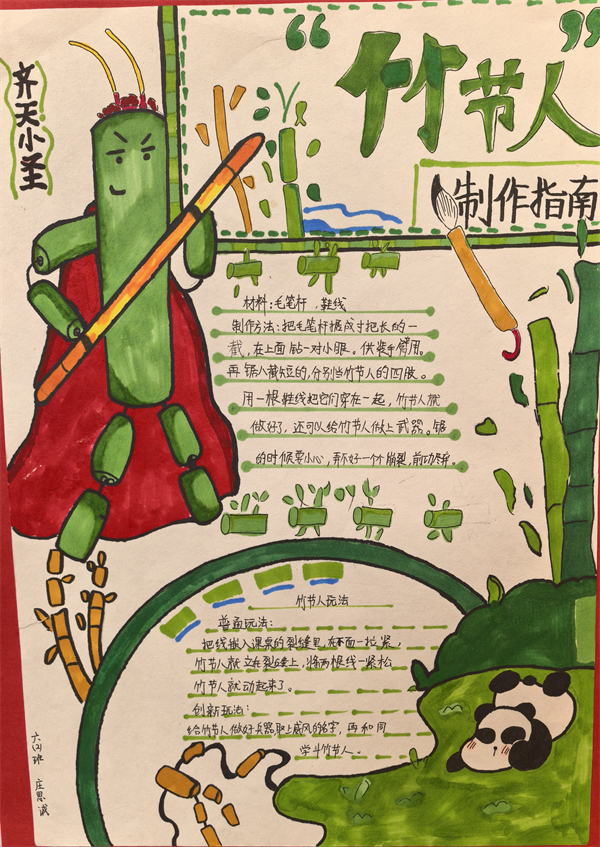 齐天小圣
“竹节人”
制作指南
材料:毛笔杆,鞋线
制作方法:把毛笔杆锯成寸把长的一
截,在上面钻一对小眼。供装手臂用。
再锯八截短的,分别当竹节人的四肢。
用一根鞋线把它们穿在一起,竹节人就
做好了,还可以给竹节人做上武器。锯
的时候要小心,弄不好一个崩裂,前功尽弃。
竹节人玩法
普通玩法:
把线嵌入课桌的裂缝里,在下面一拉紧,
竹节人就立在裂缝上,将两根线一紧松
竹节人就动起来了。
创新玩法:
给竹节人做好兵器,取上威风的名字,再和同
学斗竹节人。
六(2)班 庄思诚